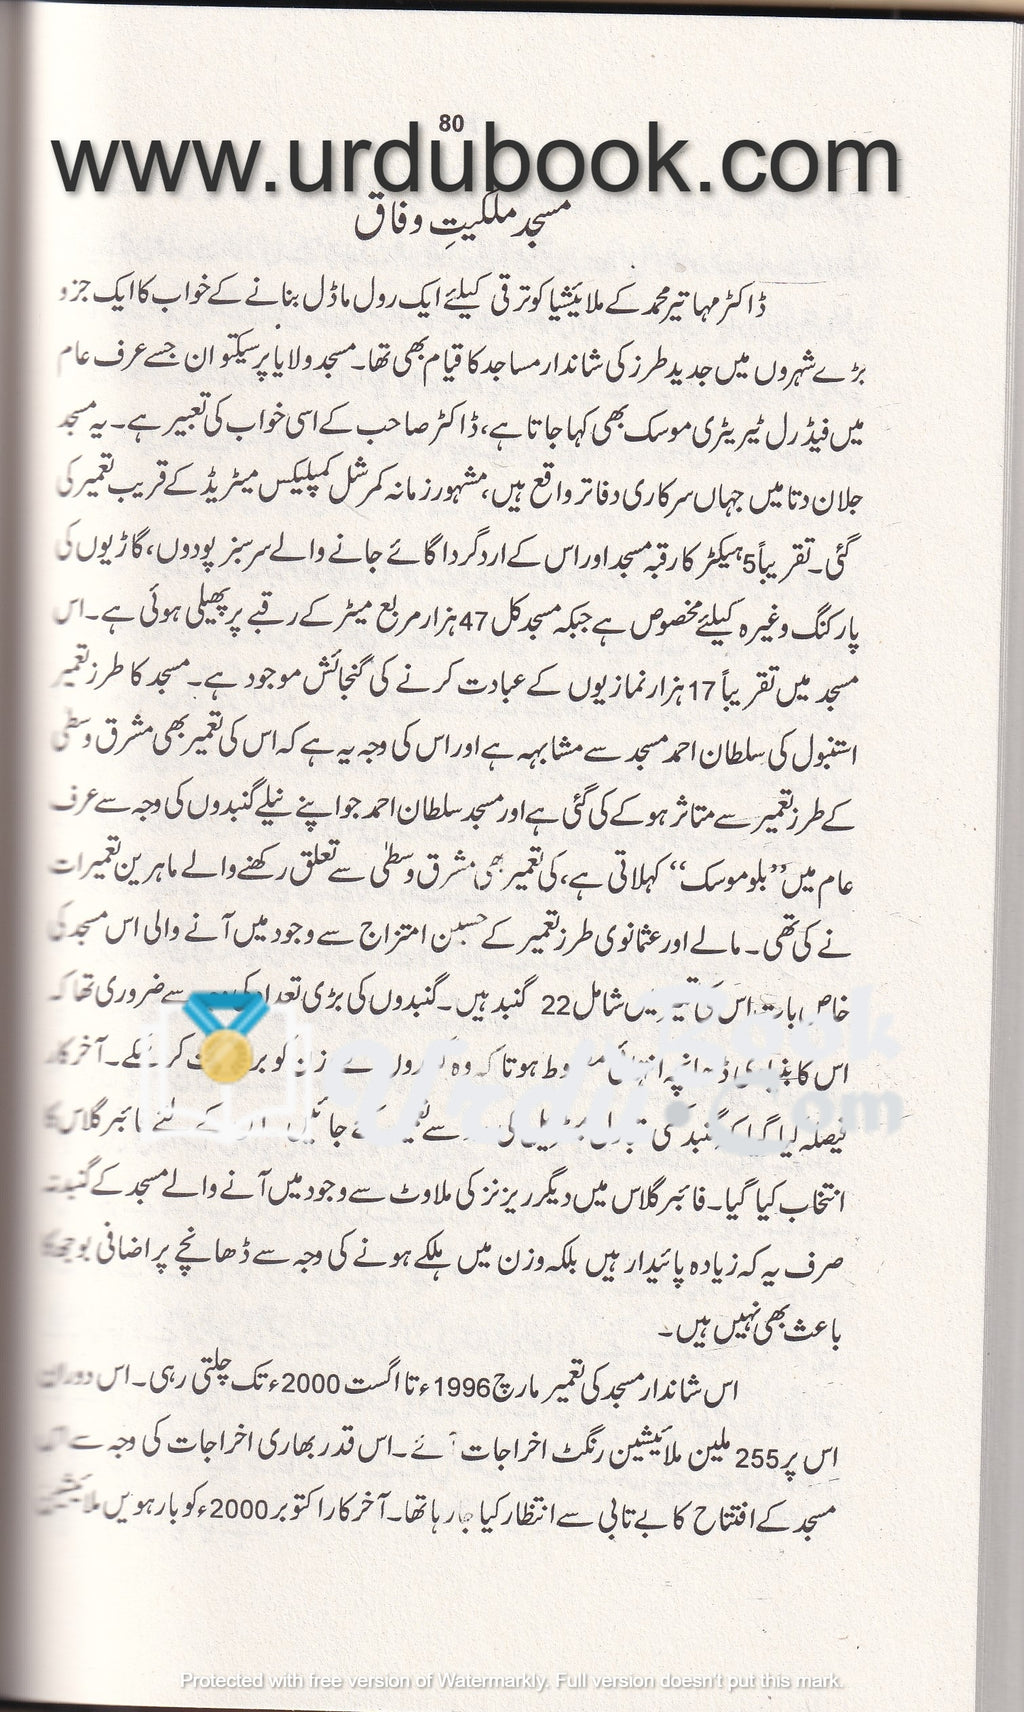 80
www.urdubook.com
مسجد ملکیتِ وفاق
ڈاکٹر مہاتیر محمد کے ملائیشیا کو ترقی کیلئے ایک رول ماڈل بنانے کے خواب کا ایک جزو
بڑے شہروں میں جدید طرز کی شاندار مساجد کا قیام بھی تھا۔ مسجد ولایا پرسیکتوان جسے عرف عام
میں فیڈرل ٹیریٹری موسک بھی کہا جاتا ہے، ڈاکٹر صاحب کے اسی خواب کی تعبیر ہے۔ یہ مسجد
جلان دتا میں جہاں سرکاری دفاتر واقع ہیں، مشہور زمانہ کمرشل کمپلیکس میٹریڈ کے قریب تعمیر کی
گئی۔ تقریباً 5 ہیکٹر کا رقبہ مسجد اور اس کے اردگرد اگائے جانے والے سرسبز پودوں، گاڑیوں کی
پارکنگ وغیرہ کیلئے مخصوص ہے جبکہ مسجد کل 47 ہزار مربع میٹر کے رقبے پر پھیلی ہوئی ہے۔ اس
مسجد میں تقریباً 17 ہزار نمازیوں کے عبادت کرنے کی گنجائش موجود ہے۔ مسجد کا طرز تعمیر
استنبول کی سلطان احمد مسجد سے مشابہہ ہے اور اس کی وجہ یہ ہے کہ اس کی تعمیر بھی مشرق وسطی
کے طرز تعمیر سے متاثر ہو کے کی گئی ہے اور مسجد سلطان احمد جو اپنے نیلے گنبدوں کی وجہ سے عرف
عام میں ”بلو موسک“ کہلاتی ہے، کی تعمیر بھی مشرق وسطیٰ سے تعلق رکھنے والے ماہرین تعمیرات
نے کی تھی۔ مالے اور عثمانوی طرز تعمیر کے حسین امتزاج سے وجود میں آنے والی اس مسجد کی
خاص بات اس کی میں شامل 22 گنبد ہیں۔ گنبدوں کی بڑی تعداد کی سے ضروری تھا کہ
اس کا ڈھانچہ انتہائی ہوتا کہ وہ کو کر سکے۔ آخر کار
فیصلہ کیا گیا کہ گنبد کی سے تعمیر کئے جائیں کے لئے فائبر گلاس کا
انتخاب کیا گیا۔ فائبر گلاس میں دیگر ریزنز کی ملاوٹ سے وجود میں آنے والے مسجد کے گنبد نہ
صرف یہ کہ زیادہ پائیدار ہیں بلکہ وزن میں ہلکے ہونے کی وجہ سے ڈھانچے پر اضافی بوجھ کا
باعث بھی نہیں ہیں۔
اس شاندار مسجد کی تعمیر مارچ 1996ء تا اگست 2000ء تک چلتی رہی۔ اس دوران
اس پر 255 ملین ملائیشین رنگٹ اخراجات آئے۔ اس قدر بھاری اخراجات کی وجہ سے اس
مسجد کے افتتاح کا بے تابی سے انتظار کیا جا رہا تھا۔ آخر کار اکتوبر 2000ء کو بارہویں ملائیشین
Protected with free version of Watermarkly. Full version doesn't put this mark.